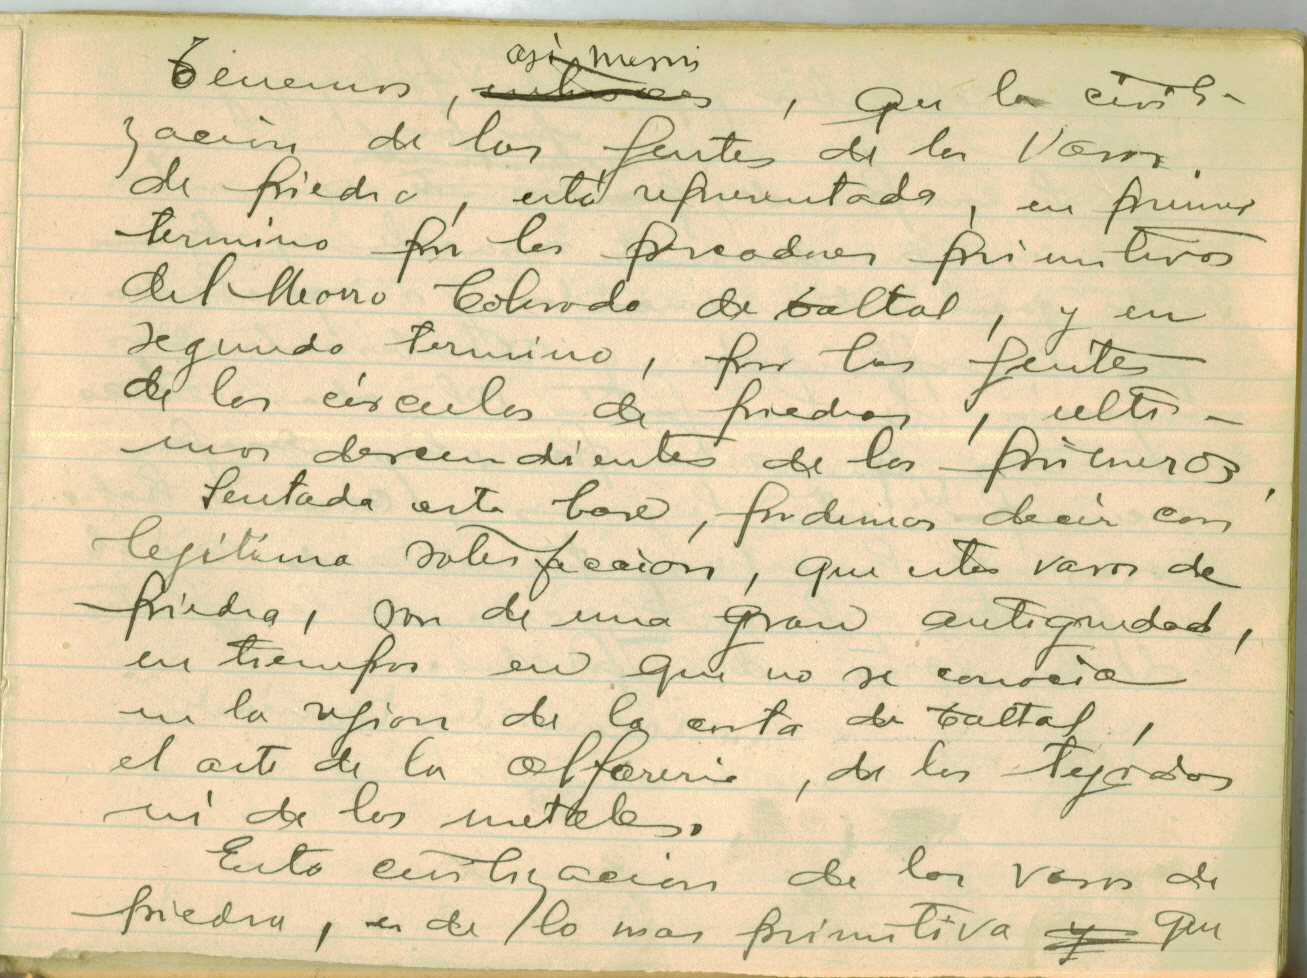 asi mismo
Tenemos, entonces, que la civili-
zación de las gentes de los Vasos
de piedra, está representada, en primer
termino por los pescadores primitivos
del Morro Colorado de Taltal, y en
segundo termino, por las gentes
de los circulos de piedras, ulti-
mos descendientes de los primeros.
Sentada esta base, podemos decir con
legitima satisfacción, que estos vasos de
piedra, son de una gran antiguedad,
en tiempos en que no se conocia
en la region de la costa de Taltal,
el arte de la alfareria, de los tejidos
ni de los metales.
Esta civilización de los vasos de
piedra, es de lo mas primitiva y que